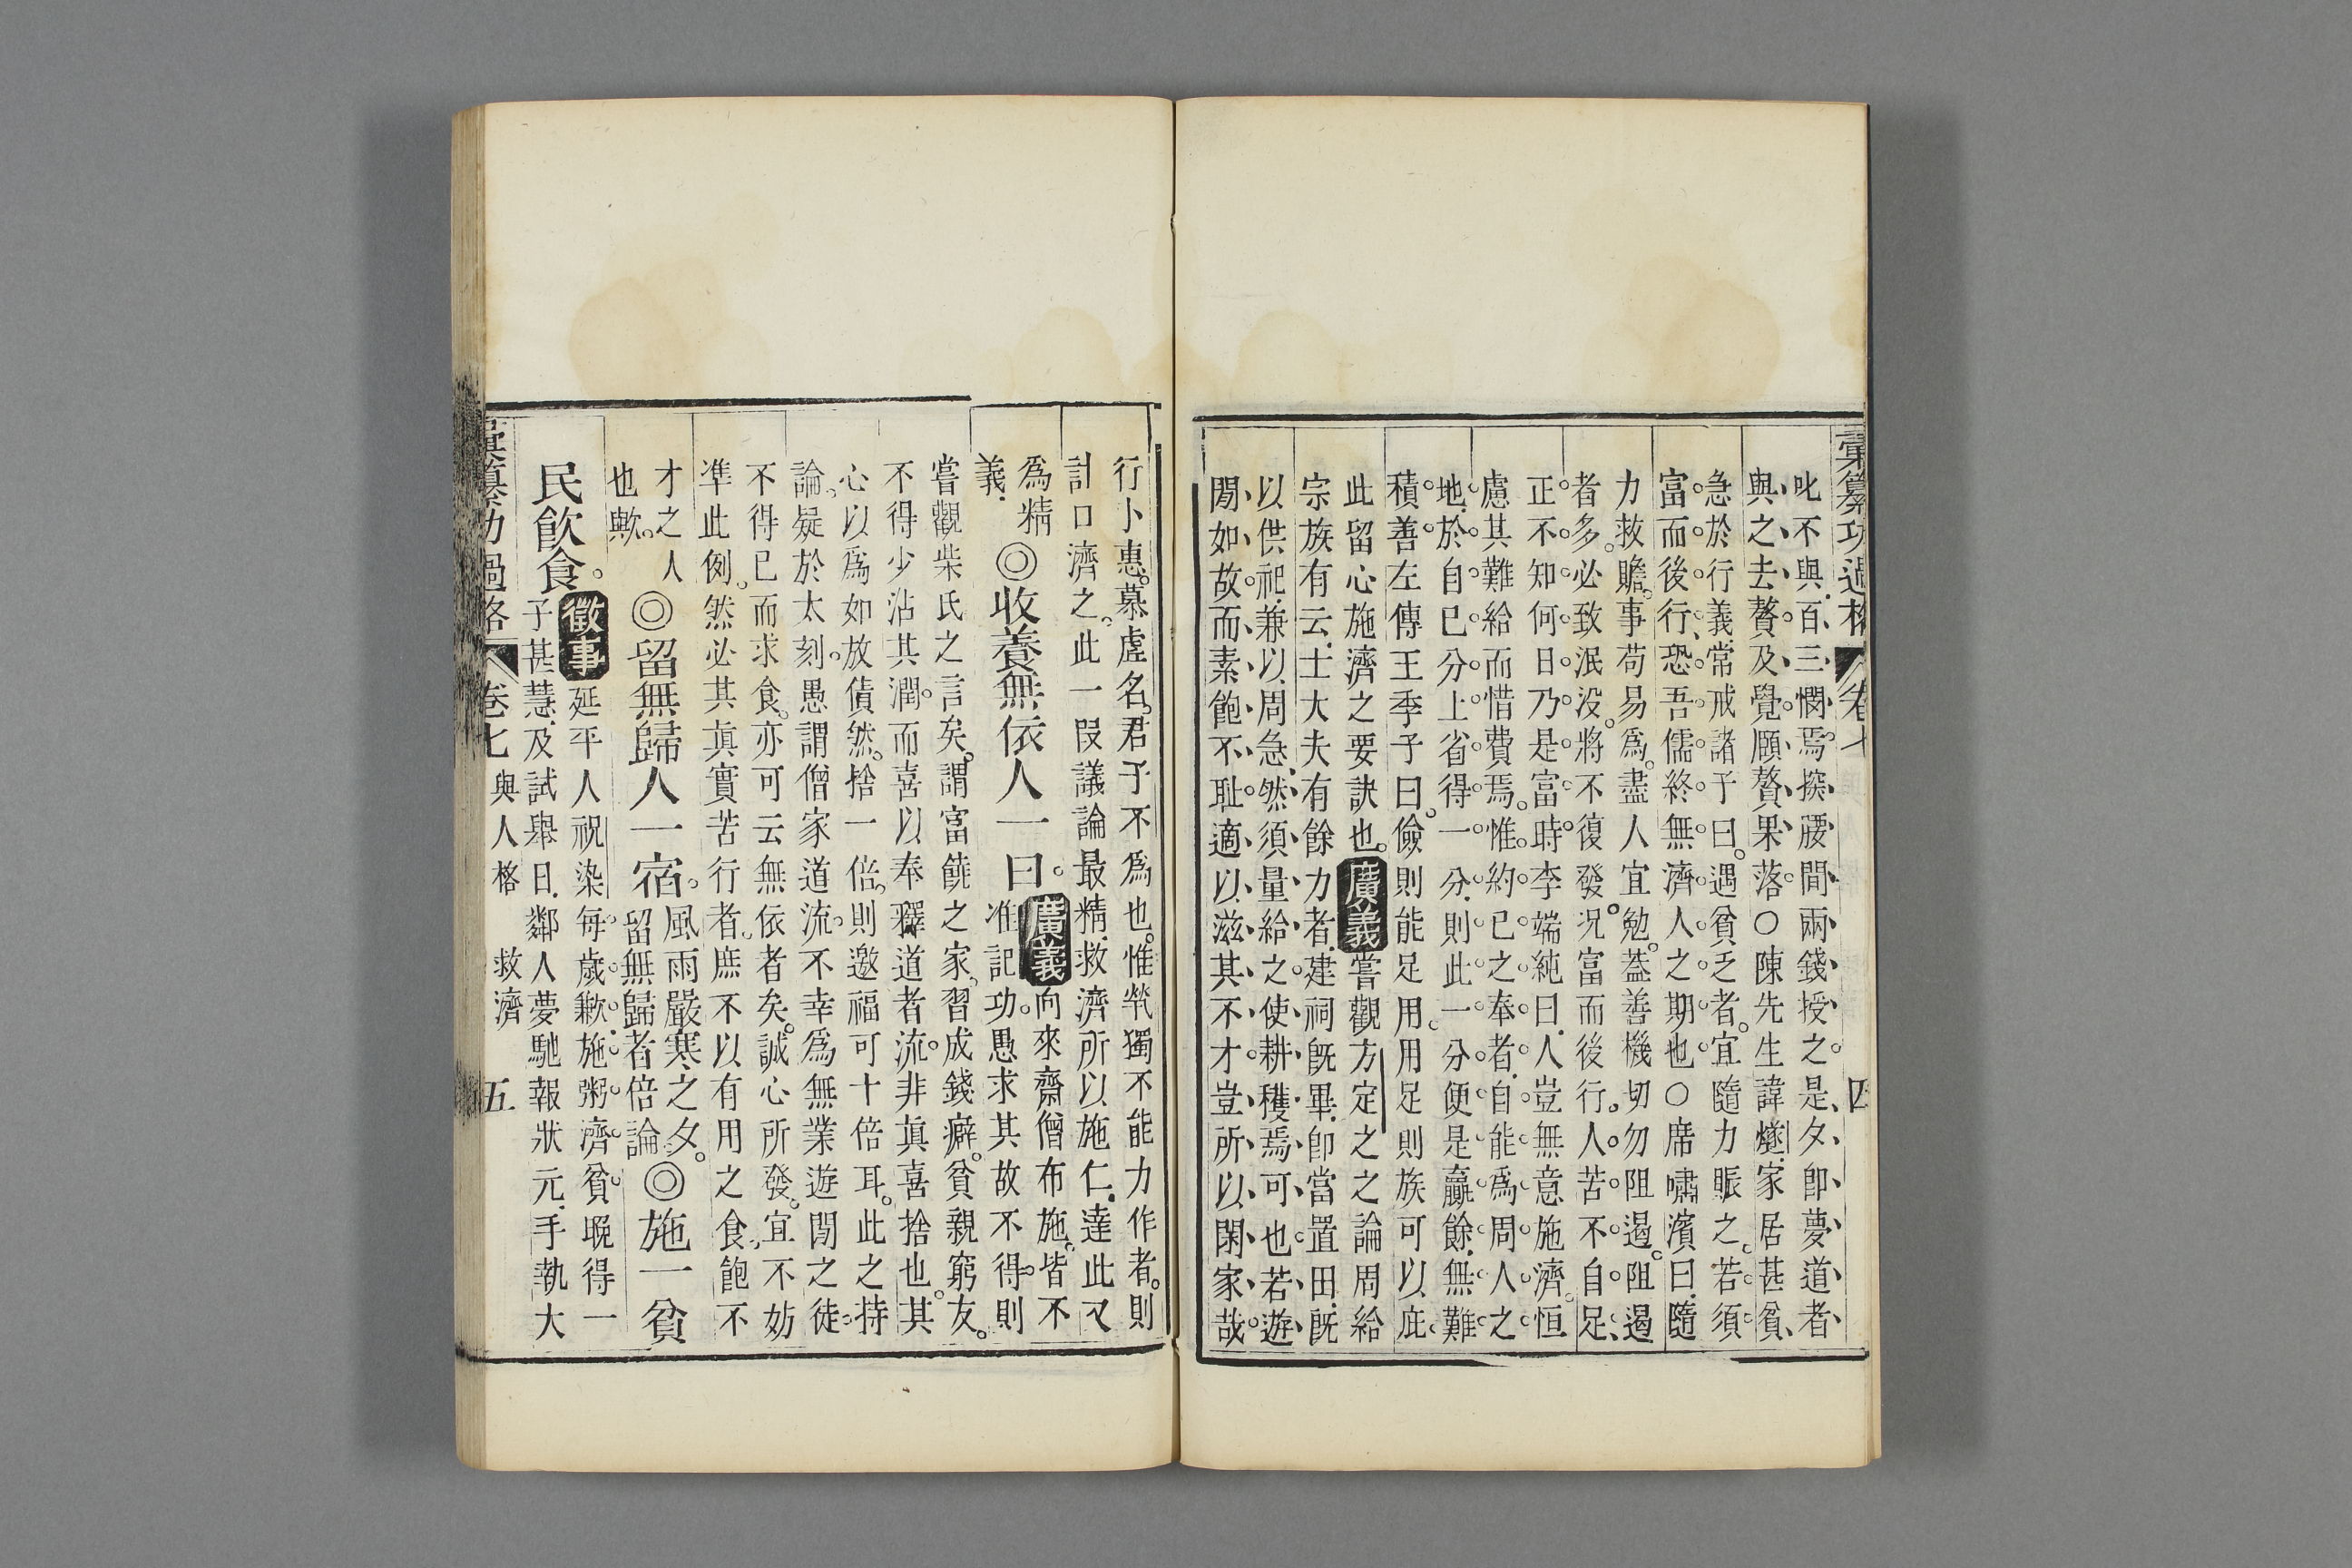 彙纂功過格 卷七 四
叱不與百三憫焉探腰間兩錢授之是夕卽夢道者
與之去贅及覺願贅果落〇陳先生諱燧家居甚貧
急於行義常戒諸子曰遇貧乏者宜隨力賑之若須
富而後行恐吾儒終無濟人之期也〇席嘯濱曰隨
力救贍事苟易爲盡人宜勉葢善機切勿阻遏阻遏
者多必致泯没將不復發况富而後行人苦不自足
正不知何日乃是富時李端純曰人豈無意施濟恒
慮其難給而惜費焉惟約已之奉者自能爲周人之
地於自已分上省得一分則此一分便是贏餘無難
積善左傳王季子曰儉則能足用用足則族可以庇
此留心施濟之要訣也廣義嘗觀方定之之論周給
宗族有云士大夫有餘力者建祠旣畢卽當置田旣
以供祀兼以周急然須量給之使耕穫焉可也若遊
閒如故而素飽不耻適以滋其不才豈所以閑家哉
行小惠慕虛名君子不爲也惟煢獨不能力作者則
計口濟之此一段議論最精救濟所以施仁達此又
爲精義◎收養無依人一曰廣義向來齋僧布施皆不
准記功愚求其故不得則
嘗觀柴氏之言矣謂富饒之家習成錢癖貧親窮友
不得少沾其潤而喜以奉釋道者流非眞喜捨也其
心以爲如放債然捨一倍則邀福可十倍耳此之持
論疑於太刻愚謂僧家道流不幸爲無業遊閒之徒
不得已而求食亦可云無依者矣誠心所發宜不妨
準此例然必其眞實苦行者庶不以有用之食飽不
才之人也歟◎留無歸人一宿風雨嚴寒之夕留無歸者倍論◎施一貧
民飮食徵事延平人祝染每歲歉施粥濟貧晚得一
子甚慧及試舉日鄰人夢馳報狀元手執大
彙纂功過格 卷七 與人格 救濟 五